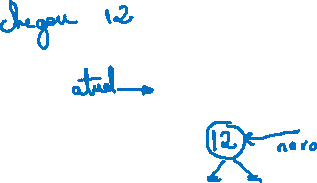 chegou 12
atual
12
novo